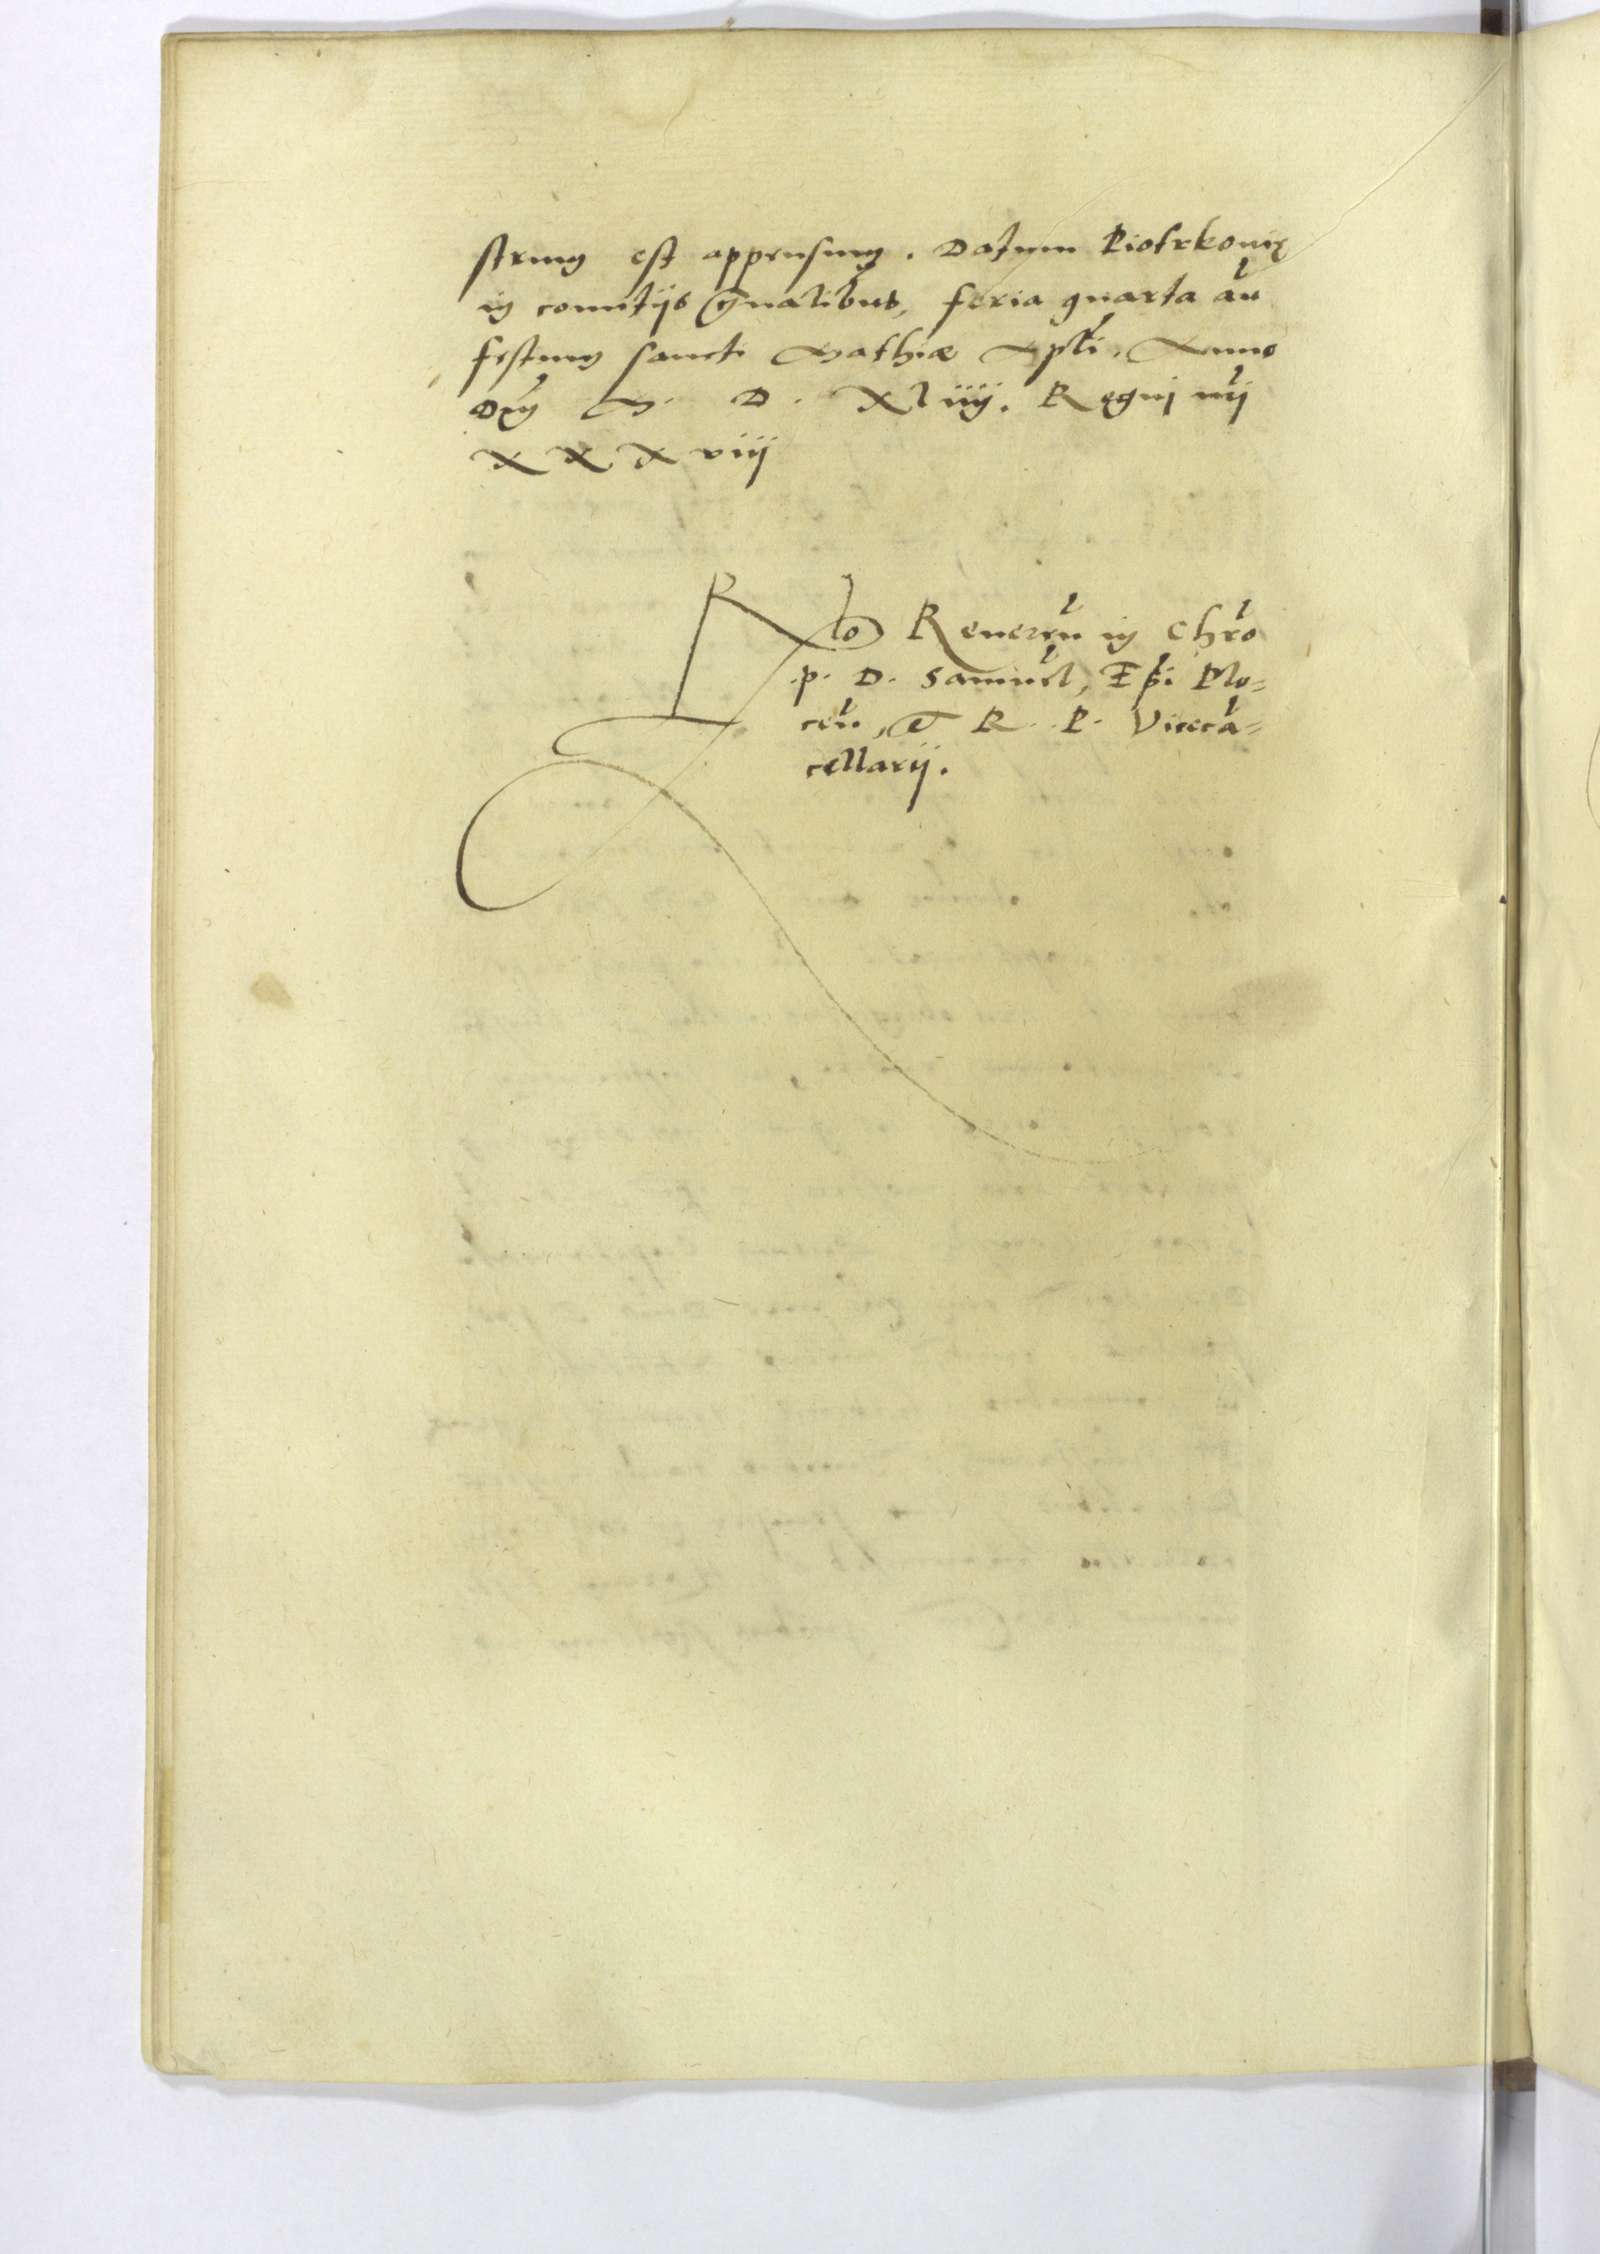 strum est appensum. Datum Piotrkovię
in comitijs gn̄alibus, feria quarta an̄
festum sancti Mathiæ Apl̄i, Anno
Dn̄j M. D. XLiiij. Regnj nr̄j
XXXviij
Rlo Reveren̄ in Chr̄o
p. D. Samuel, Epī Plo=
cen̄, et R. P. Vicecā=
cellarij.